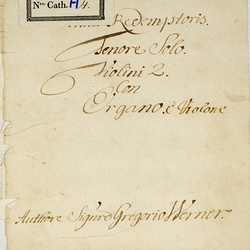 Nro. Cath. H 4.
Redemptoris.
Tenore Solo.
Violini 2.
Con
Organo. è Violone
Authore Sigre Gregorio Werner.